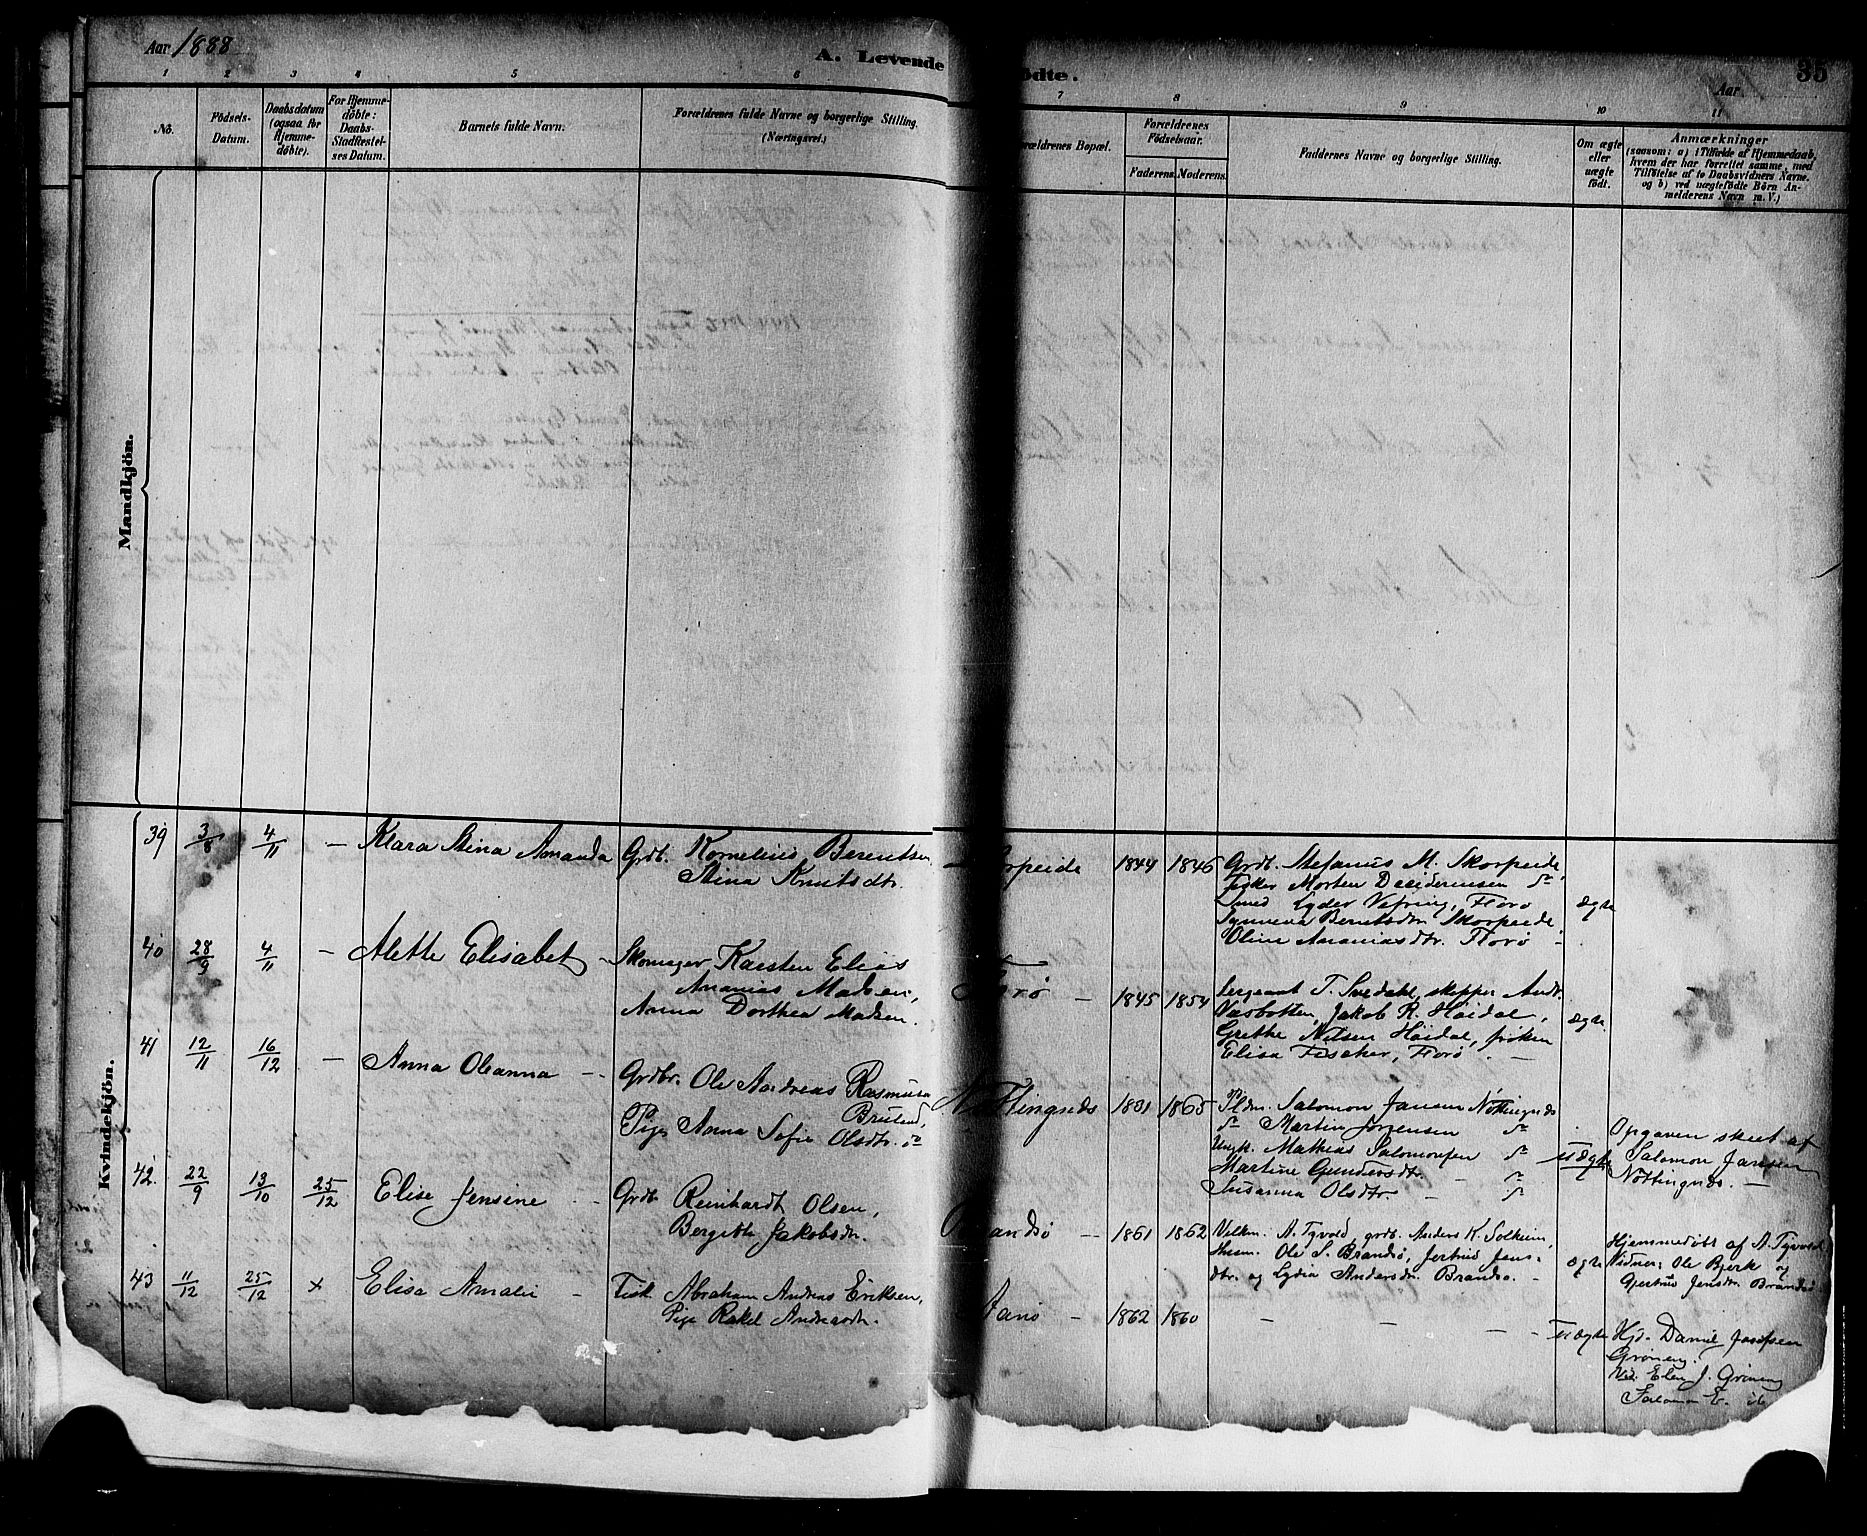 Aar 1888
A. Levende
ödte.
Aar
35
1 2 3 4 5 6 7 8 9 10 11
No.
Födsels-
Datum.
Daabsdatum
(ogsaa for
Hjemme-
döbte).
For Hjemme-
döbte:
Daabs-
Stadfæstel-
ses Datum.
Barnets fulde Navn.
Forældrenes fulde Navne og borgerlige Stilling.
(Næringsvei.)
orældrenes Bopæl.
Forældrenes
Födselsaar.
Faderens. Moderens.
Faddernes Navne og borgerlige Stilling.
Om ægte
eller
uægte
födt.
Anmærkninger
(saasom: a) i Tilfælde af Hjemmedaab,
hvem der har forrettet samme, med
Tilföielse af to Daabsvidners Navne,
og b) ved uægtefödte Börn An-
melderens Navn m. V.)
Mandkjön.
Kvindekjön.
39 3/8 4/11 — Klara Stina Amanda
Grdb. Kornelius Berentsen
Stina Knutsdtr.
orpeide 1844 1846
Grdb. Stefanus M. Skorpeide,
Fisker Morten
Smed Eyder Vefring, Florø
Synneva Berntsdtr. Skorpeide
Oline Ananiasdtr. Florø —
ægte
40 28/9 4/11 — Alette Elisabet —
Skomager Karsten Elias
Ananias Madsen,
Anna Dorthea Madsen.
rø — 1845 1854
Sergeant T. Svedahl, skipper Andr.
Vasbotten, Jakob R. Höidal,
Grethe Nilsen Höidal, frøken
Elisa Fischer, Florø. —
ægte
41 12/11 16/12 — Anna Oleanna —
Grdbr. Ole Andreas Rasmusen
Pige Anna Sofie Olsdtr.
ttingnds 1865
Pldm. Salomon Jansen Nöttingnds
Martin Jörgensen
Ungk. Mathias Salomonsen
Martine Gundersdtr. —
Susanna Olsdtr —
uægte
Opgaven skeet af
Salomon Jansen
Nöttingnds. —
42. 22/9 13/10 25/12 Elise Jensine —
Grdb. Reinhardt Olsen,
Bergithe Jakobsdtr.
andsö — 1861 1862
A. Tyvold, grdb. Anders K. Solheim,
Husm. Ole S. Brandsö, Jertrud Jens-
dtr. og Lydia Andersdtr. Brandsø. —
ægte
Hjemmedöbt af A. Tyvold
Vidner: Ole Bjerk og
Gjertrud Jensdtr. Brandsö
43 11/12 25/12 x Elisa Amalie —
Fisk. Abraham Andreas Eriksen,
Pige Rakel Andreasdtr.
anö — 1862 1860
— — —
uægte
Hjd. Daniel Josefsen
Gröneng.
Vid. Elen J. Gröneng
Salomon E. ib